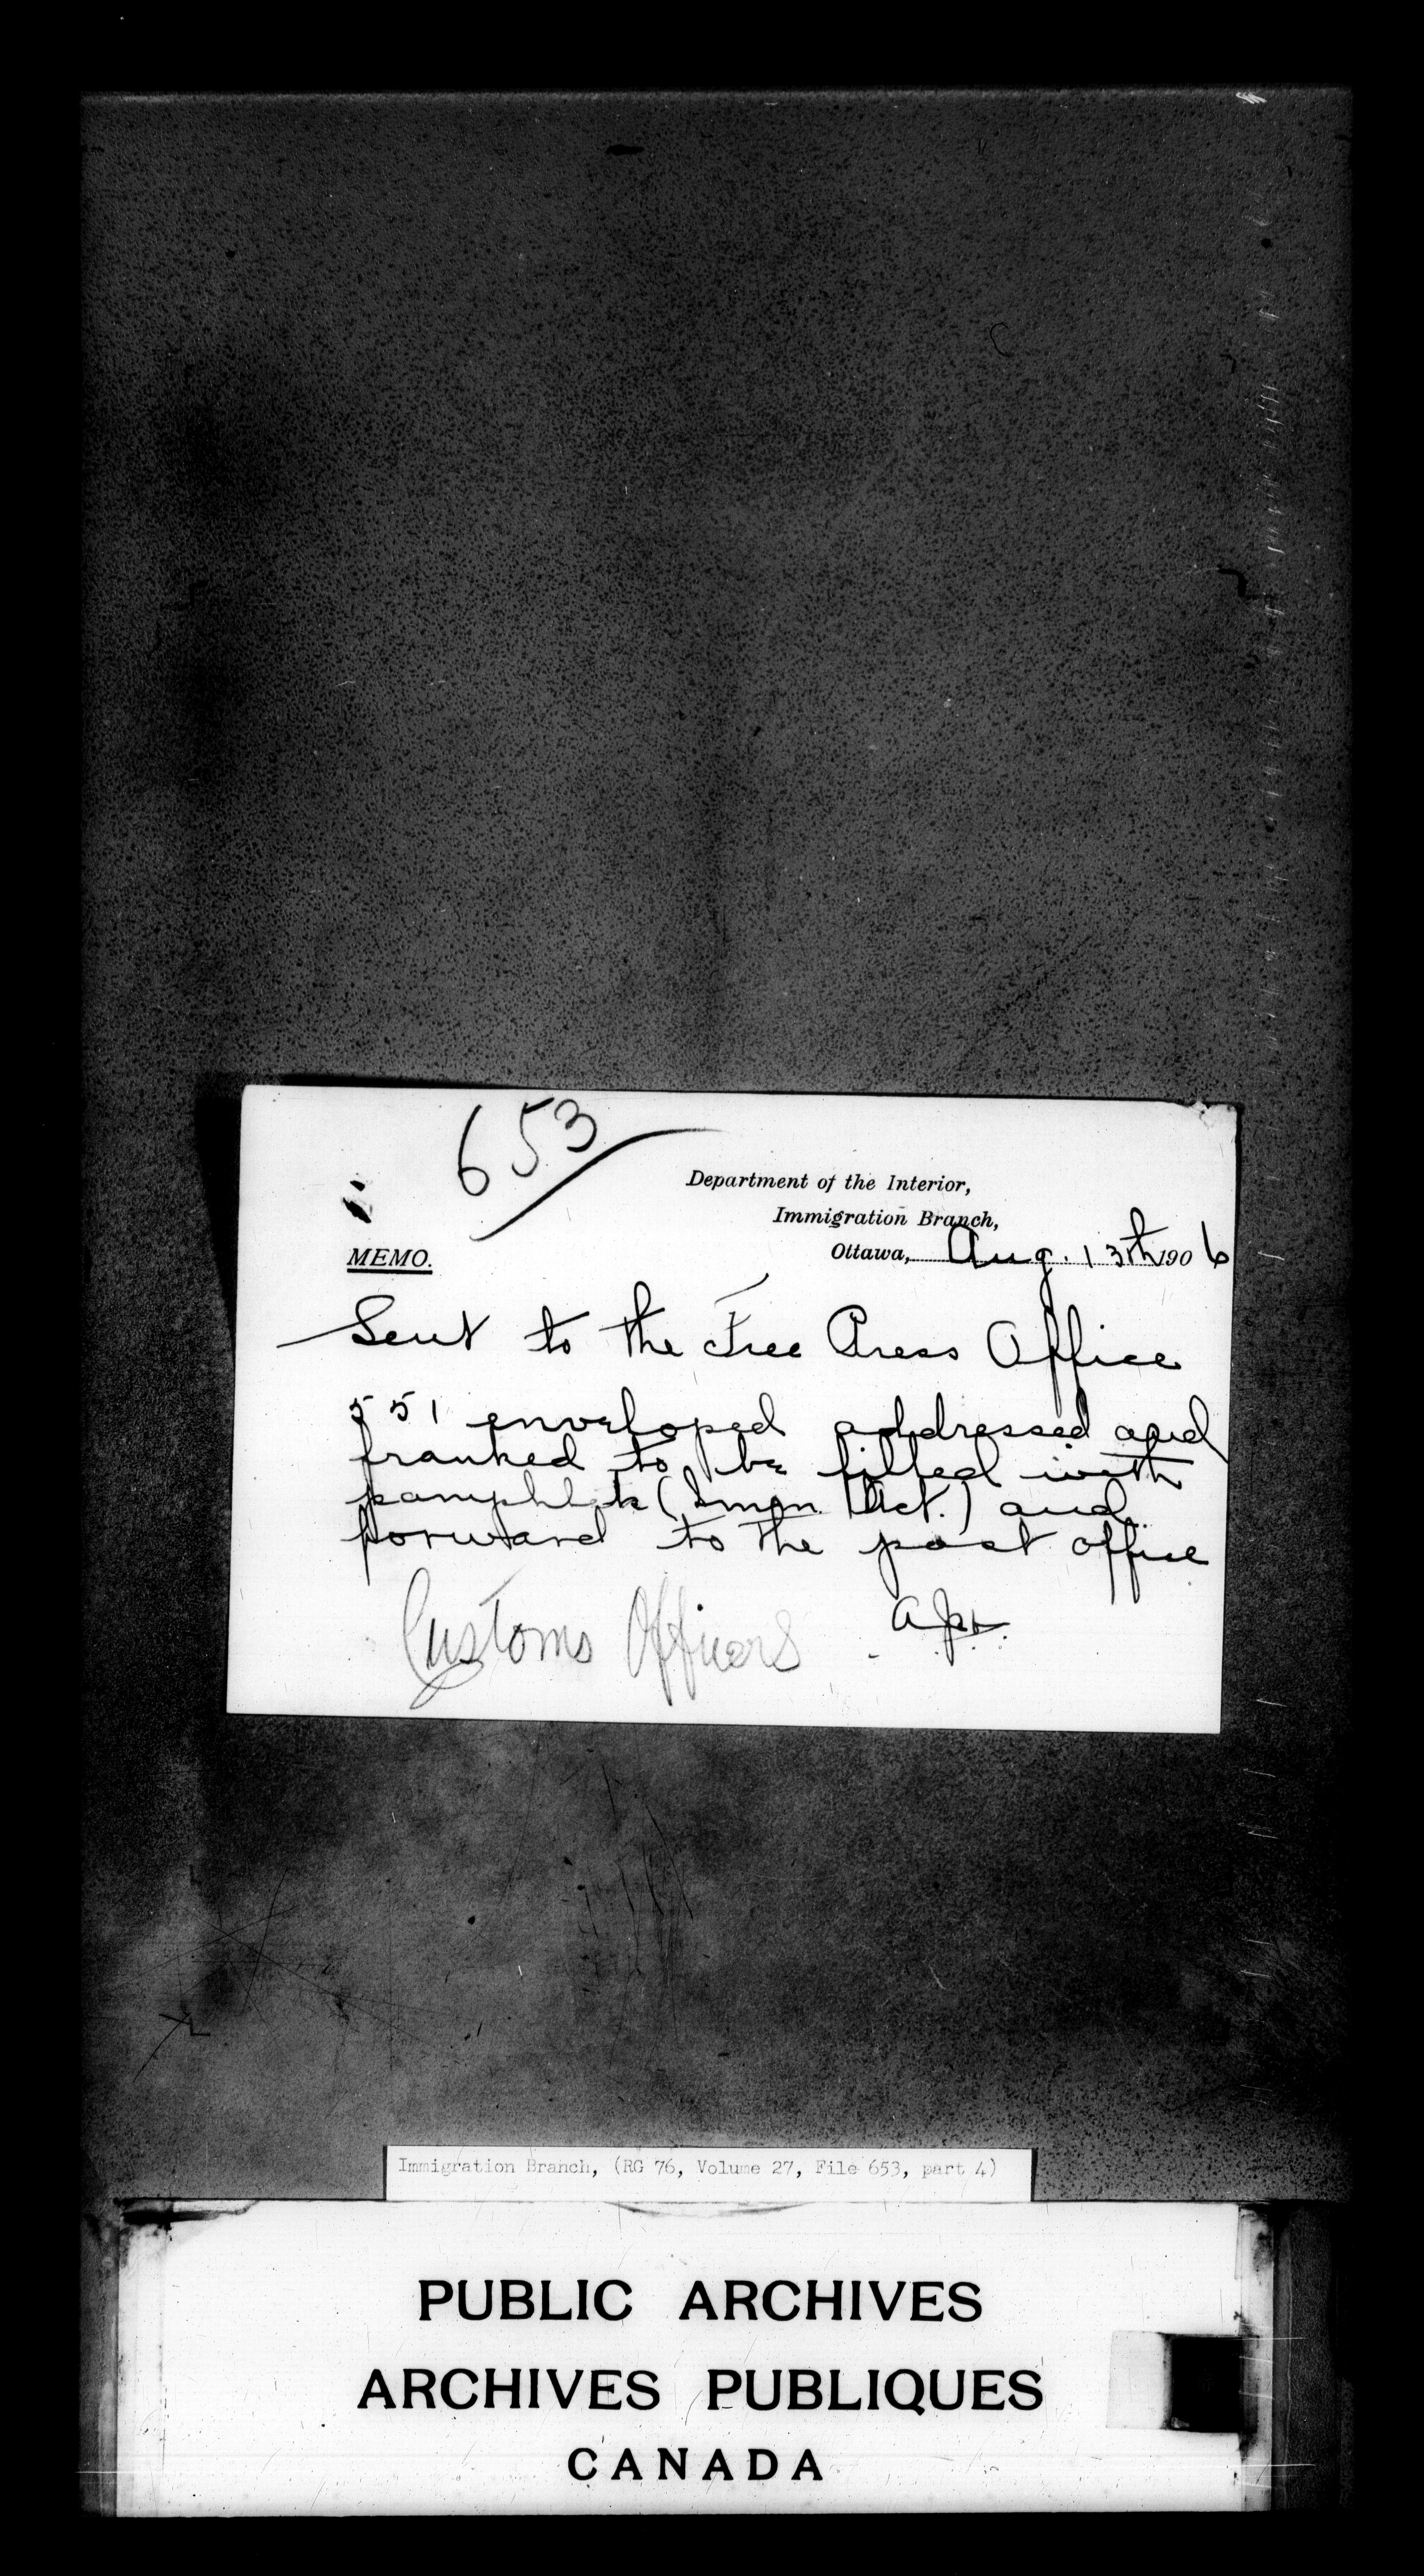 653
Department of the Interior,
Immigration Branch,
MEMO. Ottawa, Aug. 13th 1906
Sent to the Free Press Office
551 enveloped addressed and
franked to be filled with
pamphlets (Immn. Act.) and
forward to the post office
Customs Officers
Immigration Branch, (RG 76, Volume 27, File 653, part 4)
PUBLIC ARCHIVES
ARCHIVES PUBLIQUES
CANADA